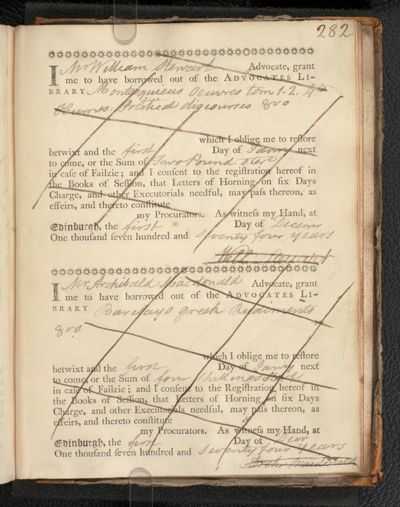 282
I Mr William Stewart Advocate, grant
me to have borrowed out of the ADVOCATES LI-
BRARY Montesquieus Oeuvres tom 1. 2. 4to
Humes Political discourses 8vo
which I oblige me to reſtore
betwixt and the first Day of Janry next
to come, or the Sum of Two Pound Ster
in caſe of Failzie; and I conſent to the regiſtration hereof in
the Books of Seſſion, that Letters of Horning on ſix Days
Charge, and other Executorials needful, may paſs thereon, as
effeirs, and thereto conſtitute
my Procurators. As witneſs my Hand, at
Edinburgh, the first Day of Decem
One thouſand ſeven hundred and seventy four years
Will: Stewart
I Mr Archibald Macdonald Advocate, grant
me to have borrowed out of the ADVOCATES LI-
BRARY Barclays greek Rudiments
8vo
which I oblige me to reſtore
betwixt and the first Day of Janry next
to come, or the Sum of four Shillings
in caſe of Failzie; and I conſent to the Regiſtration hereof in
the Books of Seſſion, that Letters of Horning on ſix Days
Charge, and other Executorials needful, may paſs thereon, as
effeirs, and thereto conſtitute
my Procurators. As witneſs my Hand, at
Edinburgh, the first Day of
One thouſand ſeven hundred and seventy four years
Macdonald